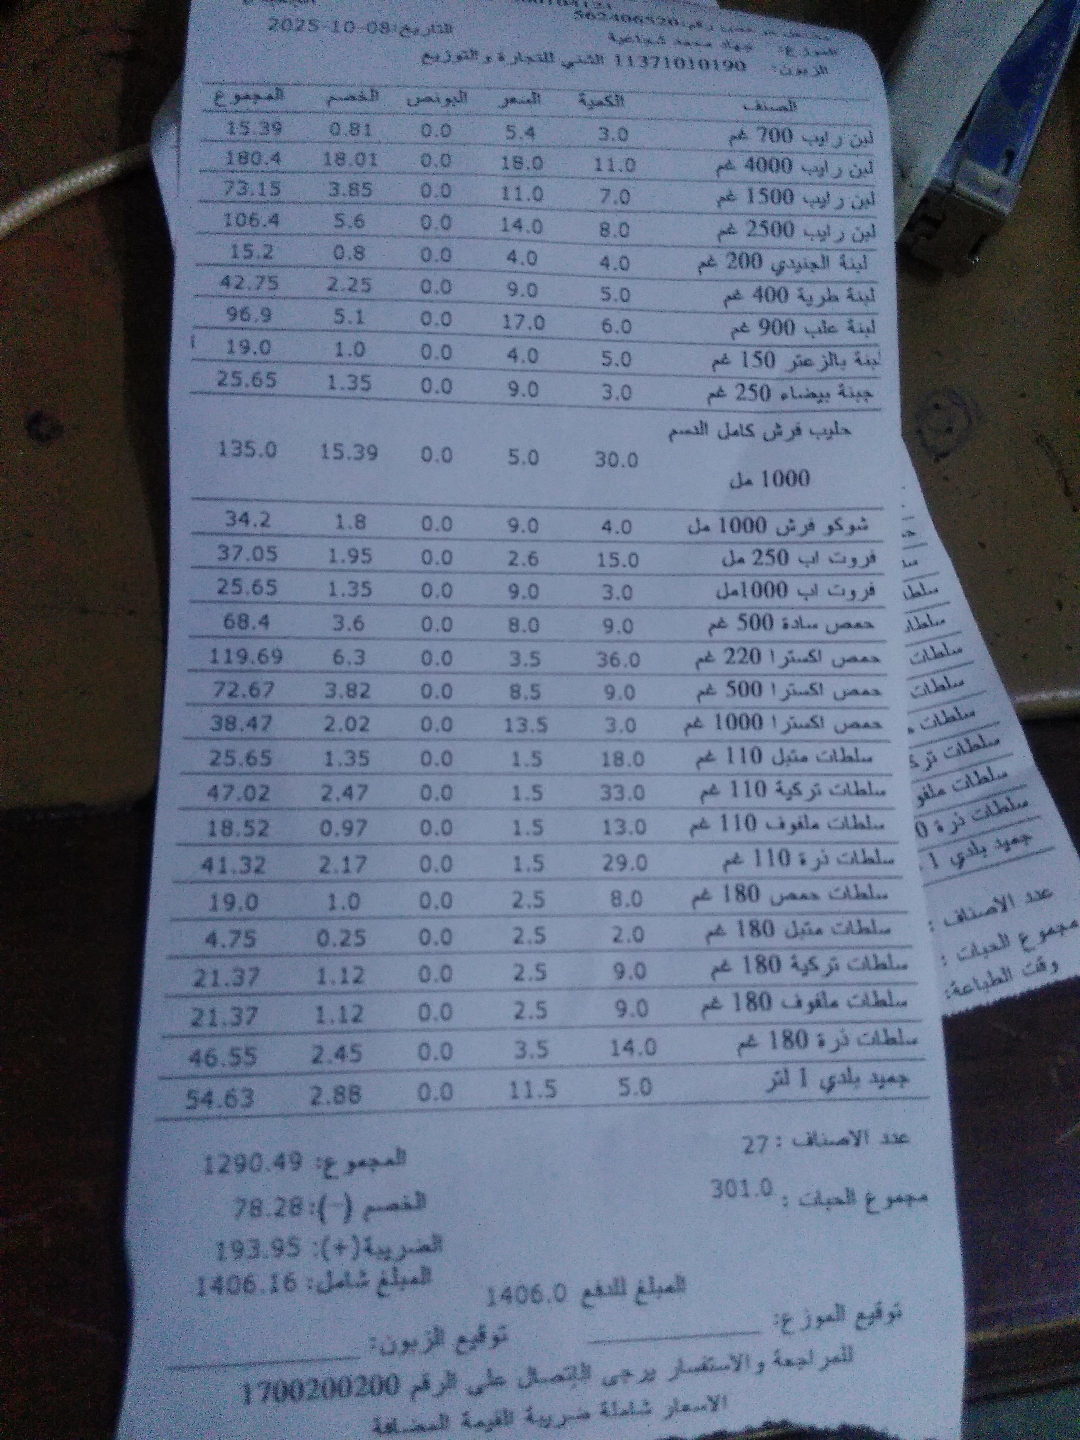 562406520
الموزع: جهاد محمد شجاعية
التاريخ:08-10-2025
الزبون: 11371010190 الشني للتجارة والتوزيع
الصنف الكمية السعر البونص الخصم المجموع
لبن رايب 700 غم 3.0 5.4 0.0 0.81 15.39
لبن رايب 4000 غم 11.0 18.0 0.0 18.01 180.4
لبن رايب 1500 غم 7.0 11.0 0.0 3.85 73.15
لبن رايب 2500 غم 8.0 14.0 0.0 5.6 106.4
لبنة الجنيدي 200 غم 4.0 4.0 0.0 0.8 15.2
لبنة طرية 400 غم 5.0 9.0 0.0 2.25 42.75
لبنة علب 900 غم 6.0 17.0 0.0 5.1 96.9
لبنة بالزعتر 150 غم 5.0 4.0 0.0 1.0 19.0
جبنة بيضاء 250 غم 3.0 9.0 0.0 1.35 25.65
حليب فرش كامل الدسم
1000 مل 30.0 5.0 0.0 15.39 135.0
شوكو فرش 1000 مل 4.0 9.0 0.0 1.8 34.2
فروت اب 250 مل 15.0 2.6 0.0 1.95 37.05
فروت اب 1000مل 3.0 9.0 0.0 1.35 25.65
حمص سادة 500 غم 9.0 8.0 0.0 3.6 68.4
حمص اكسترا 220 غم 36.0 3.5 0.0 6.3 119.69
حمص اكسترا 500 غم 9.0 8.5 0.0 3.82 72.67
حمص اكسترا 1000 غم 3.0 13.5 0.0 2.02 38.47
سلطات متبل 110 غم 18.0 1.5 0.0 1.35 25.65
سلطات تركية 110 غم 33.0 1.5 0.0 2.47 47.02
سلطات ملفوف 110 غم 13.0 1.5 0.0 0.97 18.52
سلطات ذرة 110 غم 29.0 1.5 0.0 2.17 41.32
سلطات حمص 180 غم 8.0 2.5 0.0 1.0 19.0
سلطات متبل 180 غم 2.0 2.5 0.0 0.25 4.75
سلطات تركية 180 غم 9.0 2.5 0.0 1.12 21.37
سلطات ملفوف 180 غم 9.0 2.5 0.0 1.12 21.37
سلطات ذرة 180 غم 14.0 3.5 0.0 2.45 46.55
جميد بلدي 1 لتر 5.0 11.5 0.0 2.88 54.63
عدد الاصناف : 27
المجموع: 1290.49
مجموع الحبات : 301.0
الخصم (-): 78.28
الضريبة(+): 193.95
المبلغ شامل: 1406.16
المبلغ للدفع 1406.0
توقيع الموزع:
توقيع الزبون:
للمراجعة والاستفسار يرجى الإتصال على الرقم 1700200200
الاسعار شاملة ضريبة القيمة المضافة
سلطات
سلطات
سلطات ترك
سلطات ملفو
سلطات ذرة
جميد بلدي 1
عدد الاصناف :
مجموع الحبات :
وقت الطباعة: